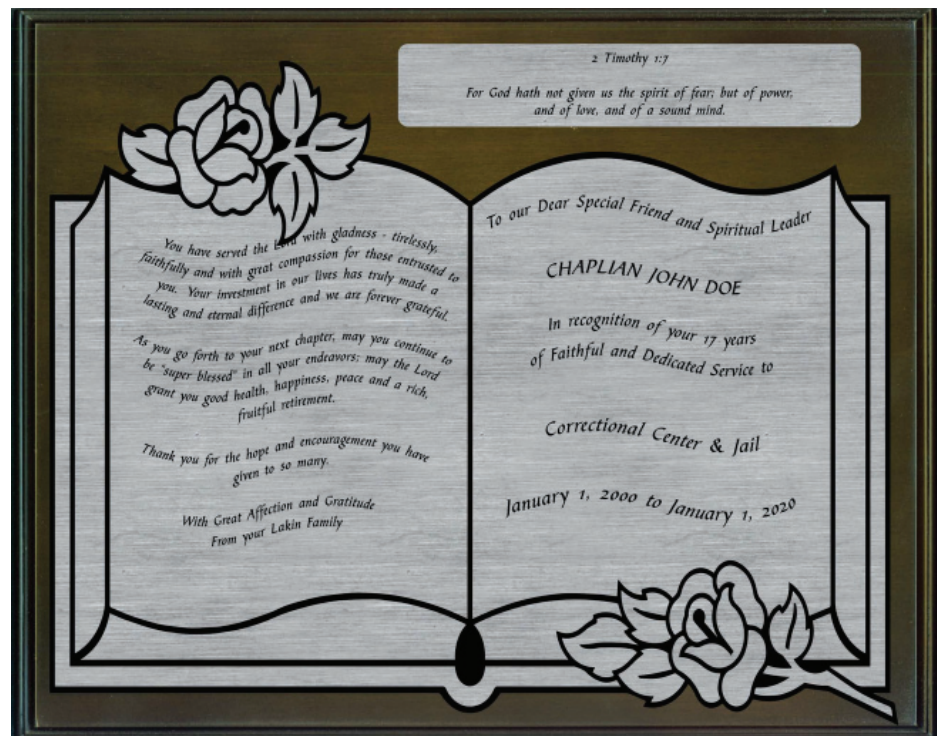 2 Timothy 1:7
For God hath not given us the spirit of fear; but of power,
and of love, and of a sound mind.
You have served the Lord with gladness - tirelessly,
faithfully and with great compassion for those entrusted to
you. Your investment in our lives has truly made a
lasting and eternal difference and we are forever grateful.
As you go forth to your next chapter, may you continue to
be "super blessed" in all your endeavors; may the Lord
grant you good health, happiness, peace and a rich,
fruitful retirement.
Thank you for the hope and encouragement you have
given to so many.
With Great Affection and Gratitude
From your Lakin Family
To our Dear Special Friend and Spiritual Leader
CHAPLIAN JOHN DOE
In recognition of your 17 years
of Faithful and Dedicated Service to
Correctional Center & Jail
January 1, 2000 to January 1, 2020